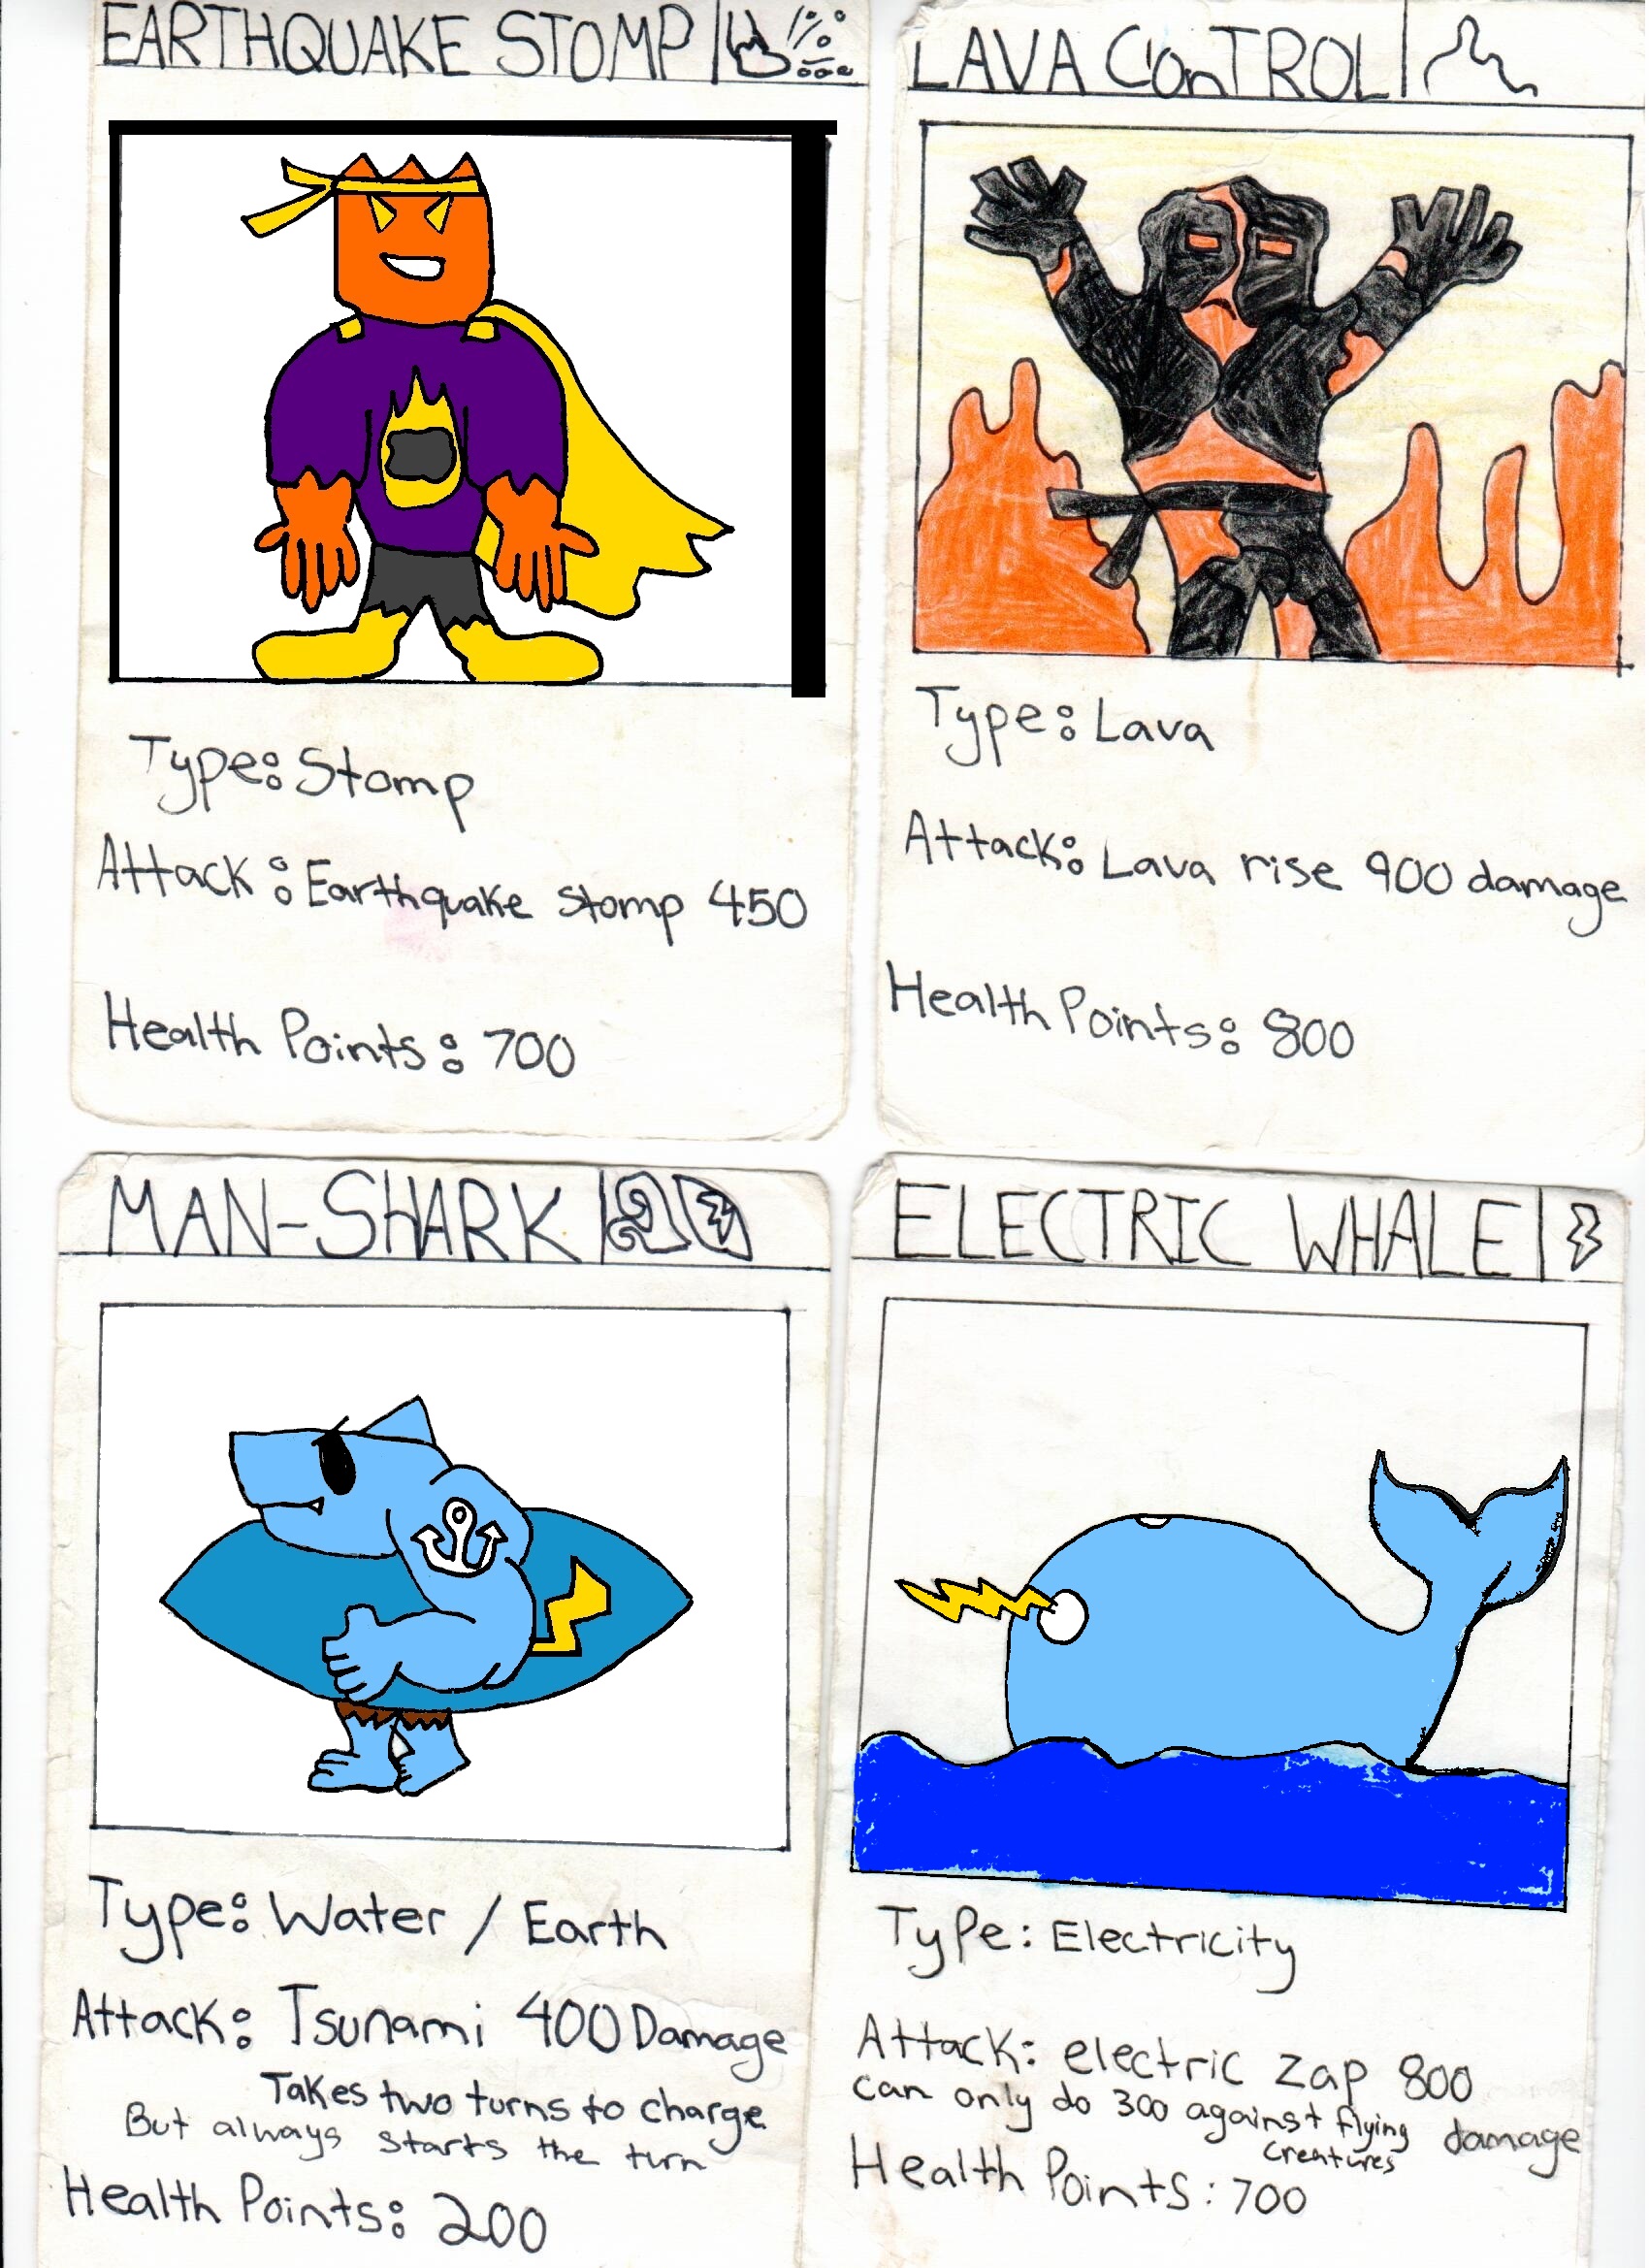 EARTHQUAKE STOMP
Type: Stomp
Attack: Earthquake stomp 450
Health Points: 700
LAVA ConTROL
Type: Lava
Attack: Lava rise 900 damage
Health Points: 800
MAN-SHARK
Type: Water / Earth
Attack: Tsunami 400 Damage
Takes two turns to charge
But always starts the turn
Health Points: 200
ELECTRIC WHALE
Type: Electricity
Attack: electric zap 800
can only do 300 against flying damage
creatures
Health Points: 700